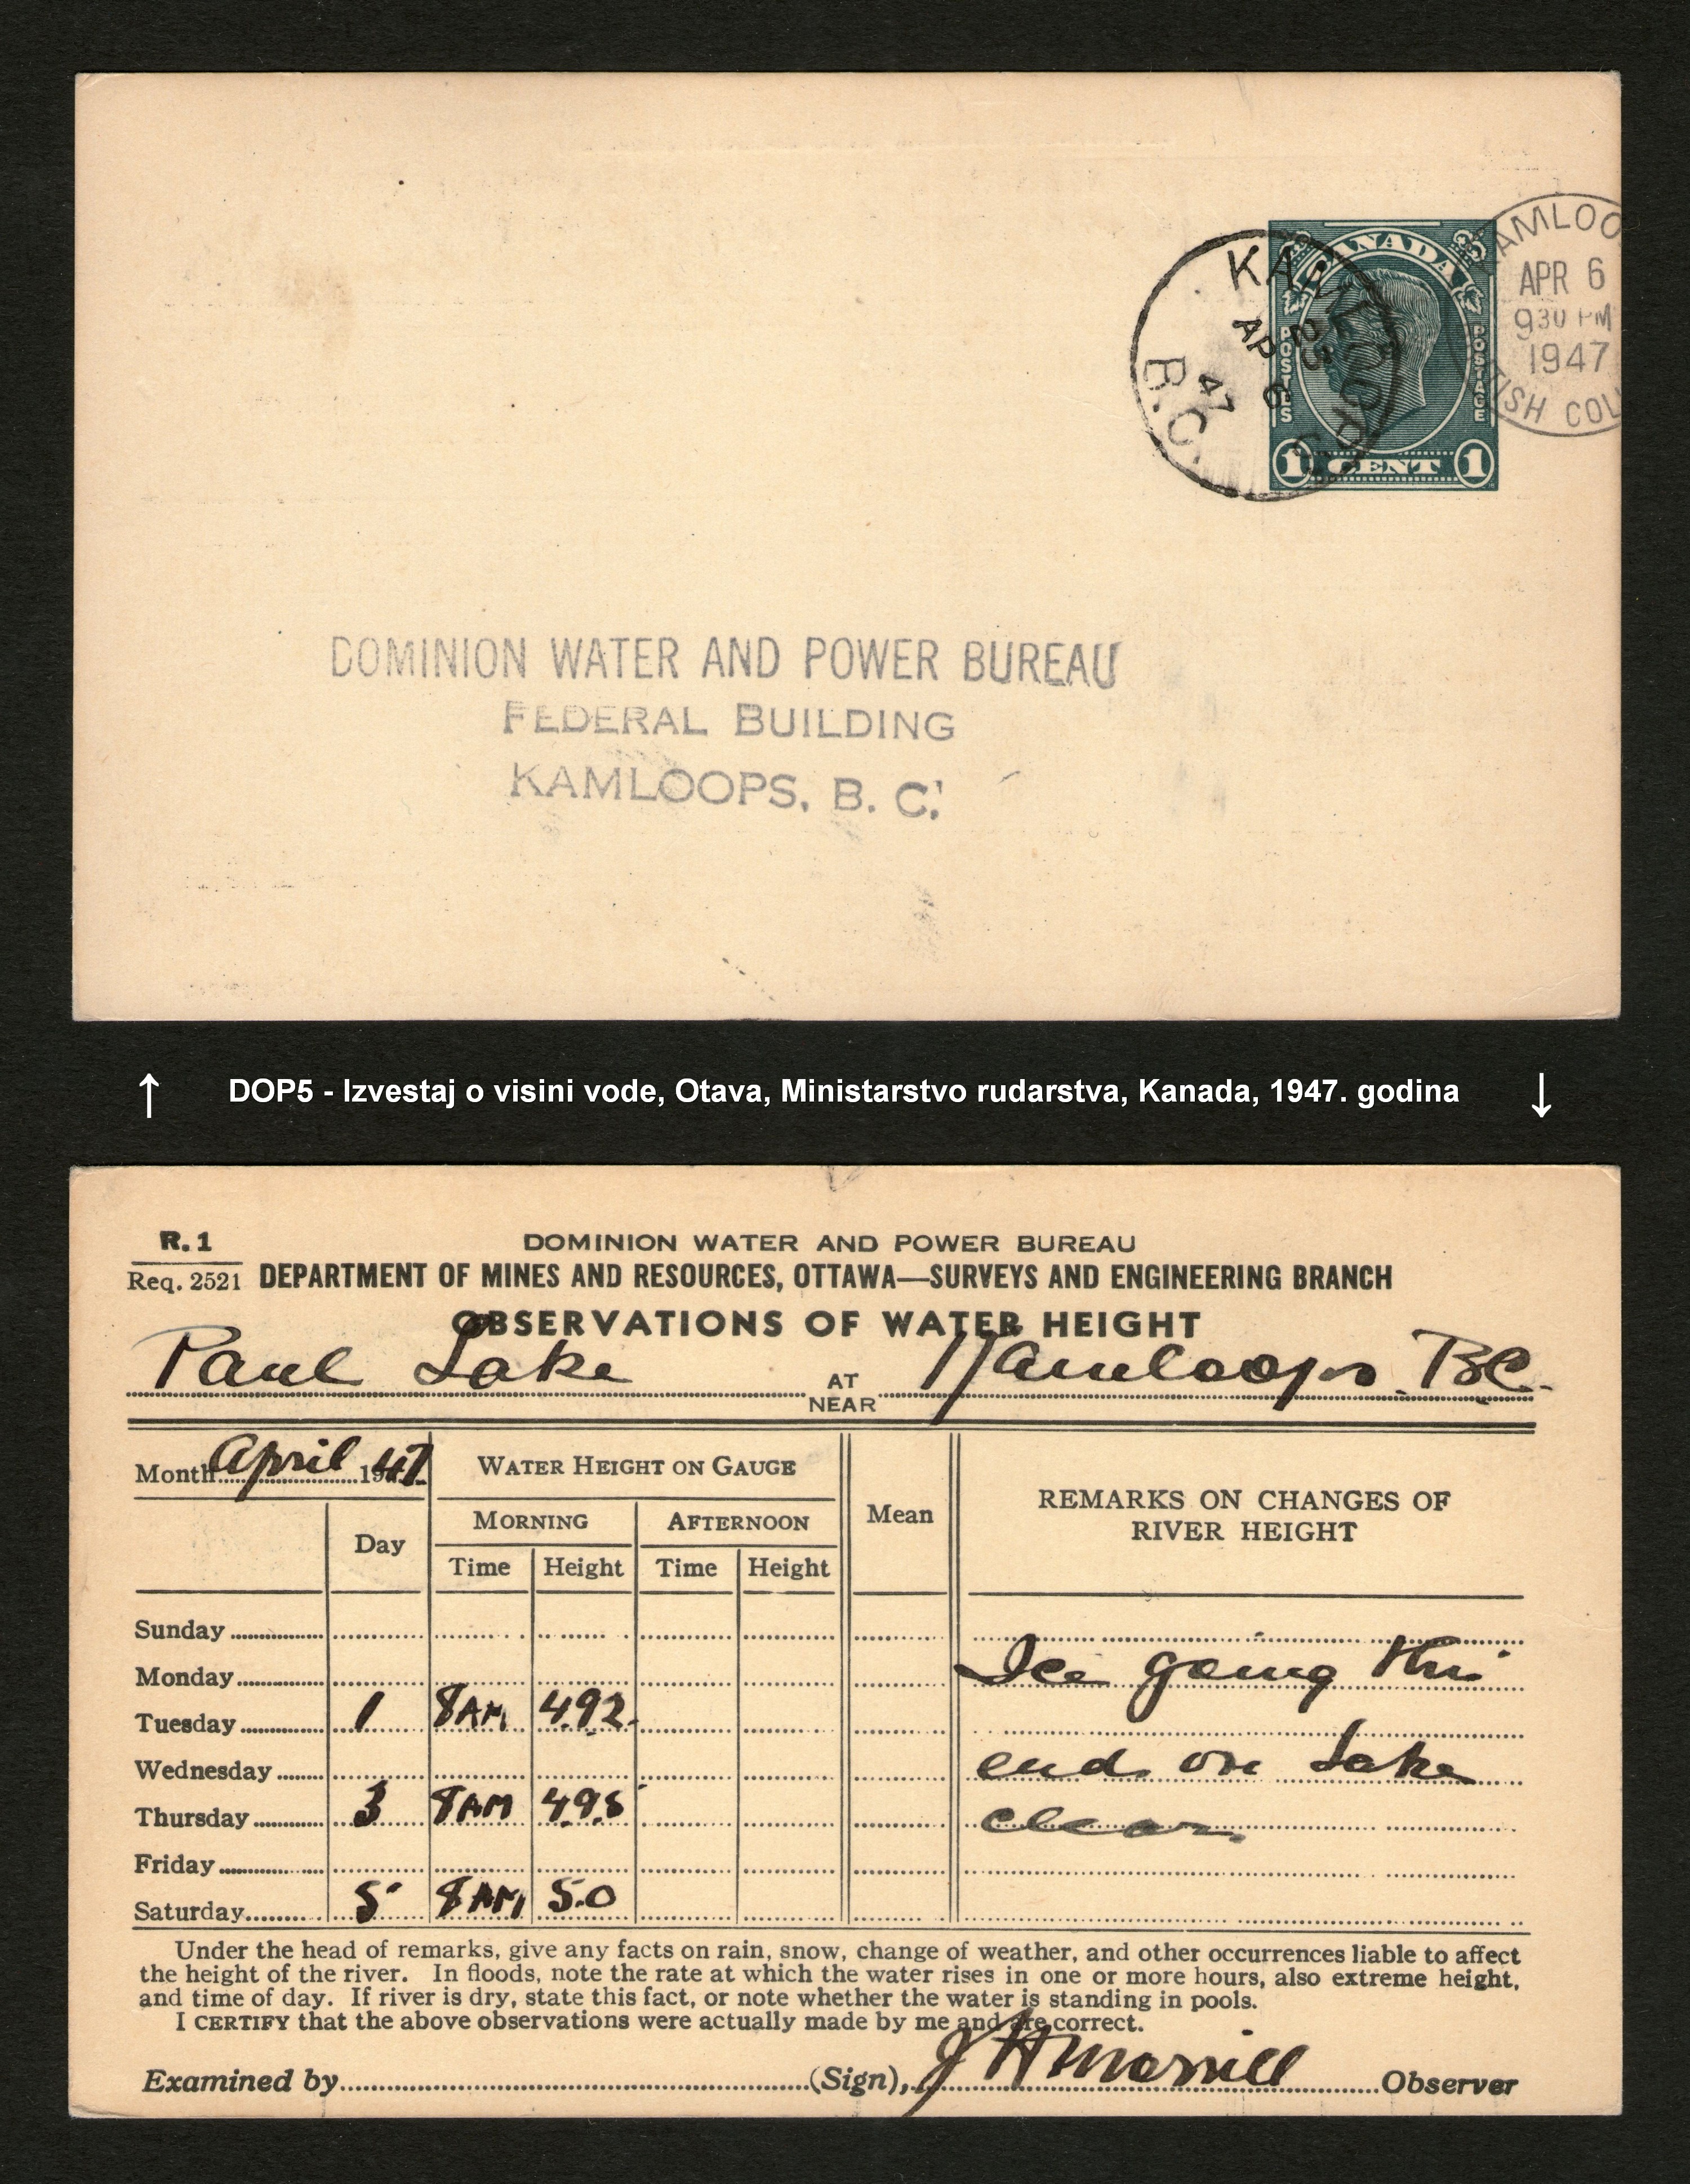 CANADA
POSTES POSTAGE
1 CENT 1
KAMLOOPS
23
AP 6
47
B.C.
KAMLOO
APR 6
930 PM
1947
TISH COL
DOMINION WATER AND POWER BUREAU
FEDERAL BUILDING
KAMLOOPS, B. C.
↑ DOP5 - Izvestaj o visini vode, Otava, Ministarstvo rudarstva, Kanada, 1947. godina ↓
R. 1 DOMINION WATER AND POWER BUREAU
Req. 2521 DEPARTMENT OF MINES AND RESOURCES, OTTAWA—SURVEYS AND ENGINEERING BRANCH
OBSERVATIONS OF WATER HEIGHT
Paul Lake AT NEAR Kamloops. BC.
Month April 1947 WATER HEIGHT ON GAUGE Mean REMARKS ON CHANGES OF RIVER HEIGHT
Day MORNING AFTERNOON
Time Height Time Height
Sunday
Monday Ice going
Tuesday 1 8AM 4.92
Wednesday end on Lake
Thursday 3 8AM 4.98 clear
Friday
Saturday 5 8AM 5.0
Under the head of remarks, give any facts on rain, snow, change of weather, and other occurrences liable to affect
the height of the river. In floods, note the rate at which the water rises in one or more hours, also extreme height,
and time of day. If river is dry, state this fact, or note whether the water is standing in pools.
I CERTIFY that the above observations were actually made by me and are correct.
Examined by (Sign), J H Morrill Observer